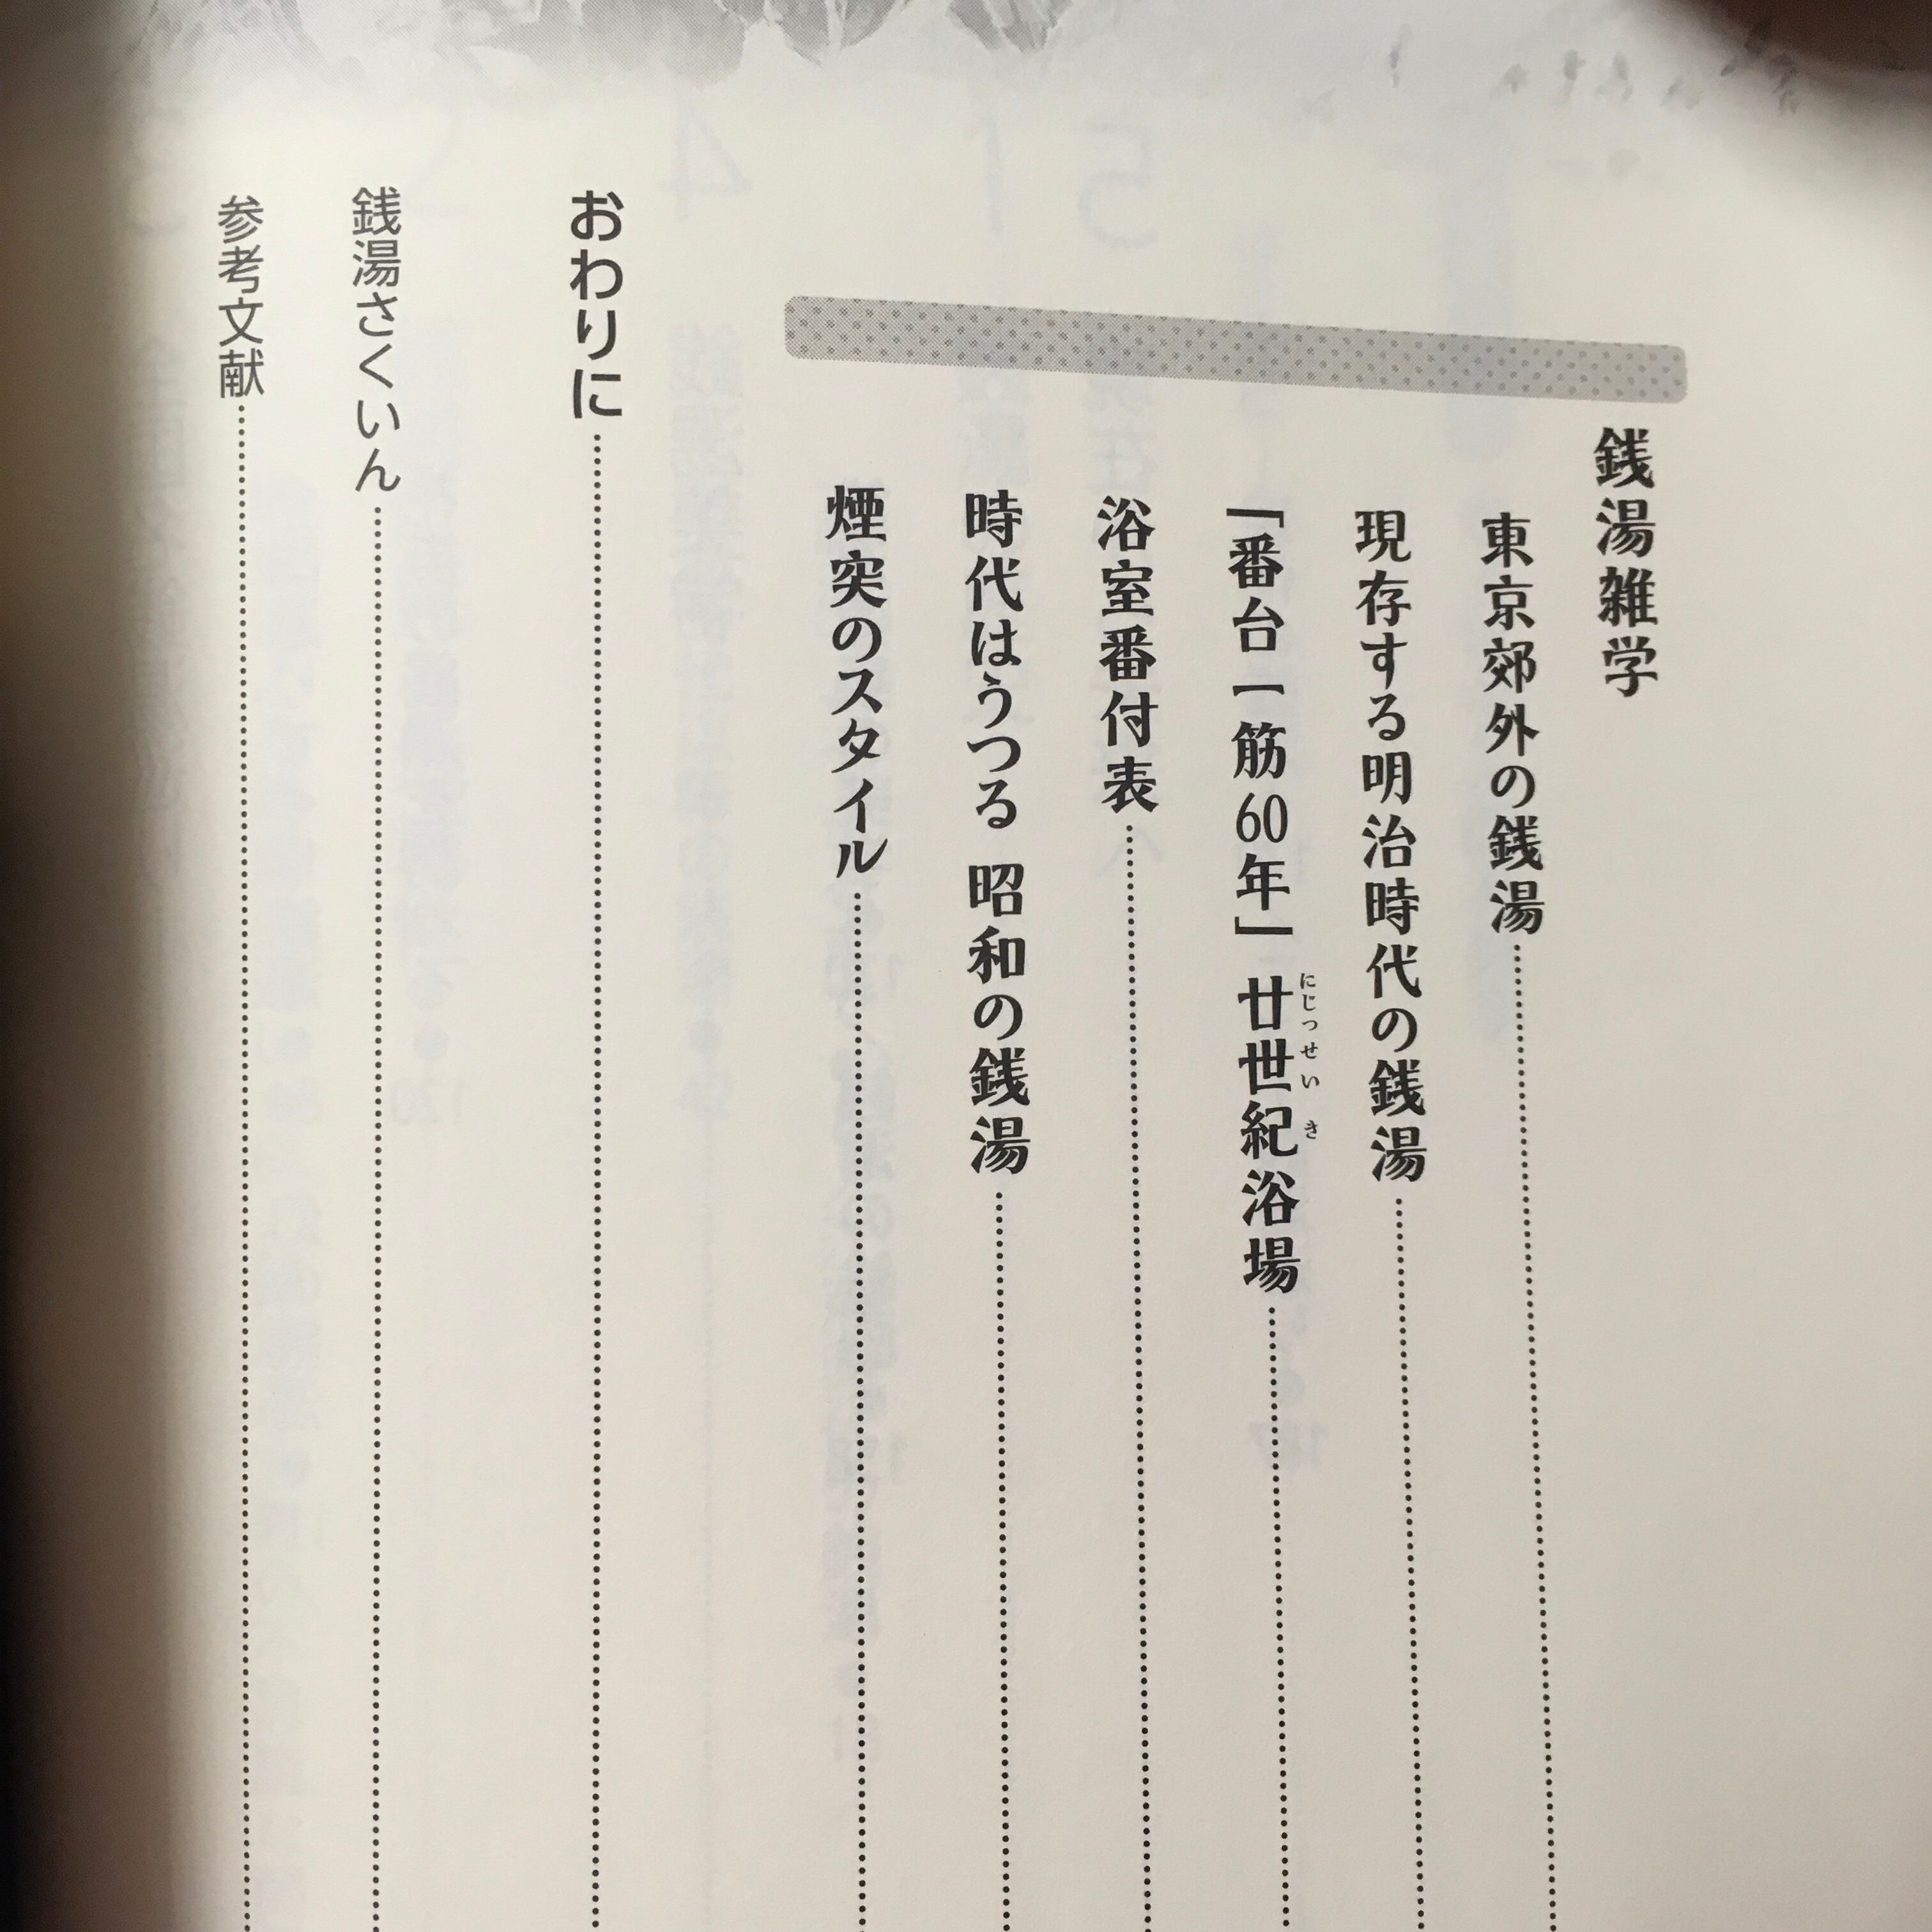 銭湯雑学
東京郊外の銭湯
現存する明治時代の銭湯
「番台一筋60年」廿世紀浴場
にじっせいき
浴室番付表
時代はうつる 昭和の銭湯
煙突のスタイル
おわりに
銭湯さくいん
参考文献